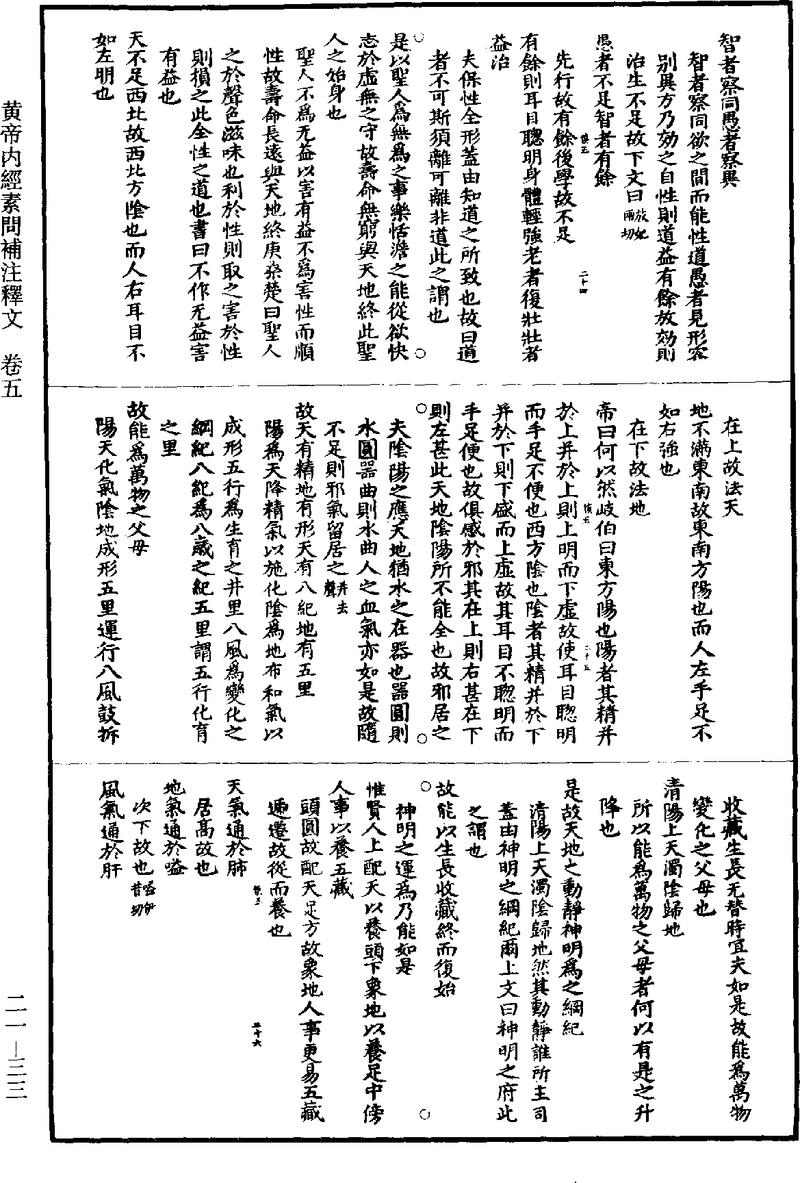 智者察同愚者察異
智者察同欲之間而能性道愚者見形容
别異方乃効之自性則道益有餘放効則
治生不足故下文曰放妃兩切
愚者不足智者有餘
先行故有餘後學故不足
有餘則耳目聰明身體輕強老者復壯壯者
益治
夫保性全形蓋由知道之所致也故曰道
者不可斯須離可離非道此之謂也
是以聖人爲無爲之事樂恬澹之能從欲快
志於虛無之守故壽命無窮與天地終此聖
人之治身也
聖人不爲无益以害有益不爲害性而順
性故壽命長遠與天地終庚桒楚曰聖人
之於聲色滋味也利於性則取之害於性
則損之此全性之道也書曰不作无益害
有益也
天不足西北故西北方陰也而人右耳目不
如左明也
在上故法天
地不滿東南故東南方陽也而人左手足不
如右強也
在下故法地
帝曰何以然岐伯曰東方陽也陽者其精并
於上并於上則上明而下虛故使耳目聰明
而手足不便也西方陰也陰者其精并於下
并於下則下盛而上虛故其耳目不聰明而
手足便也故俱感於邪其在上則右甚在下
則左甚此天地陰陽所不能全也故邪居之
夫陰陽之應天地猶水之在器也器圓則
水圓器曲則水曲人之血氣亦如是故隨
不足則邪氣留居之并去聲
故天有精地有形天有八紀地有五里
陽爲天降精氣以施化陰爲地布和氣以
成形五行爲生育之井里八風爲變化之
綱紀八紀爲八歲之紀五里謂五行化育
之里
故能爲萬物之父母
陽天化氣陰地成形五里運行八風鼓拆
收藏生長无替時宜夫如是故能爲萬物
變化之父母也
清陽上天濁陰歸地
所以能爲萬物之父母者何以有是之升
降也
是故天地之動靜神明爲之綱紀
清陽上天濁陰歸地然其動靜誰所主司
蓋由神明之綱紀爾上文曰神明之府此
之謂也
故能以生長收藏終而復始
神明之運爲乃能如是
惟賢人上配天以養頭下象地以養足中傍
人事以養五藏
頭圓故配天足方故象地人事更易五藏
遞遷故從而養也
天氣通於肺
居高故也
地氣通於嗌
次下故也嗌伊昔切
風氣通於肝
黄帝内經素問補注釋文 卷五
二一—三三